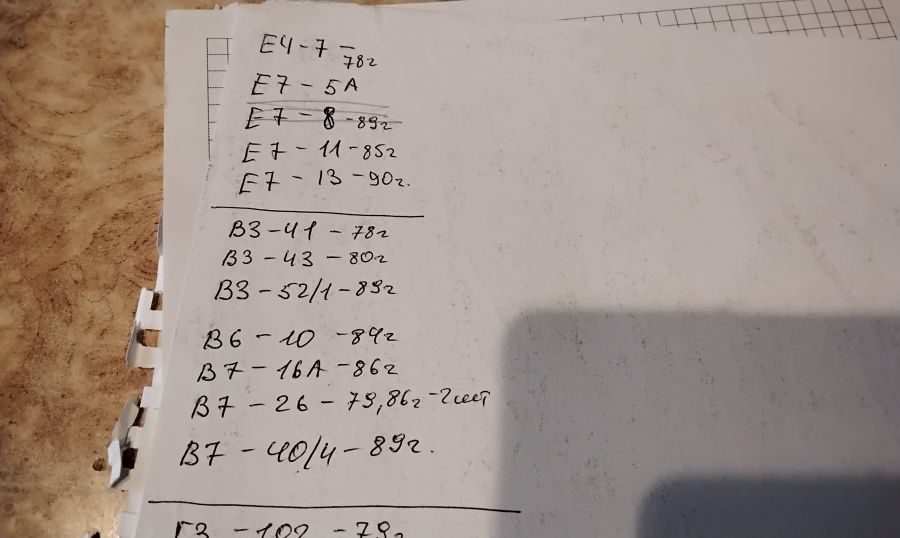 Е4-7-78г
Е7-5А
Е7-8-89г
Е7-11-85г
Е7-13-90г.
В3-41-78г
В3-43-80г
В3-52/1-89г
В6-10-84г
В7-16А-86г
В7-26-79,86г-2шт
В7-40/4-89г.
Г3-102-79г